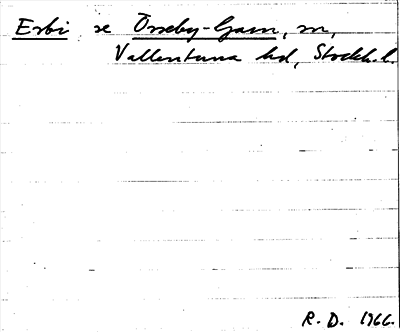 Esbi se Össeby-Garn, sn,
Vallentuna hd, Stockh. l.
R. D. 1966.